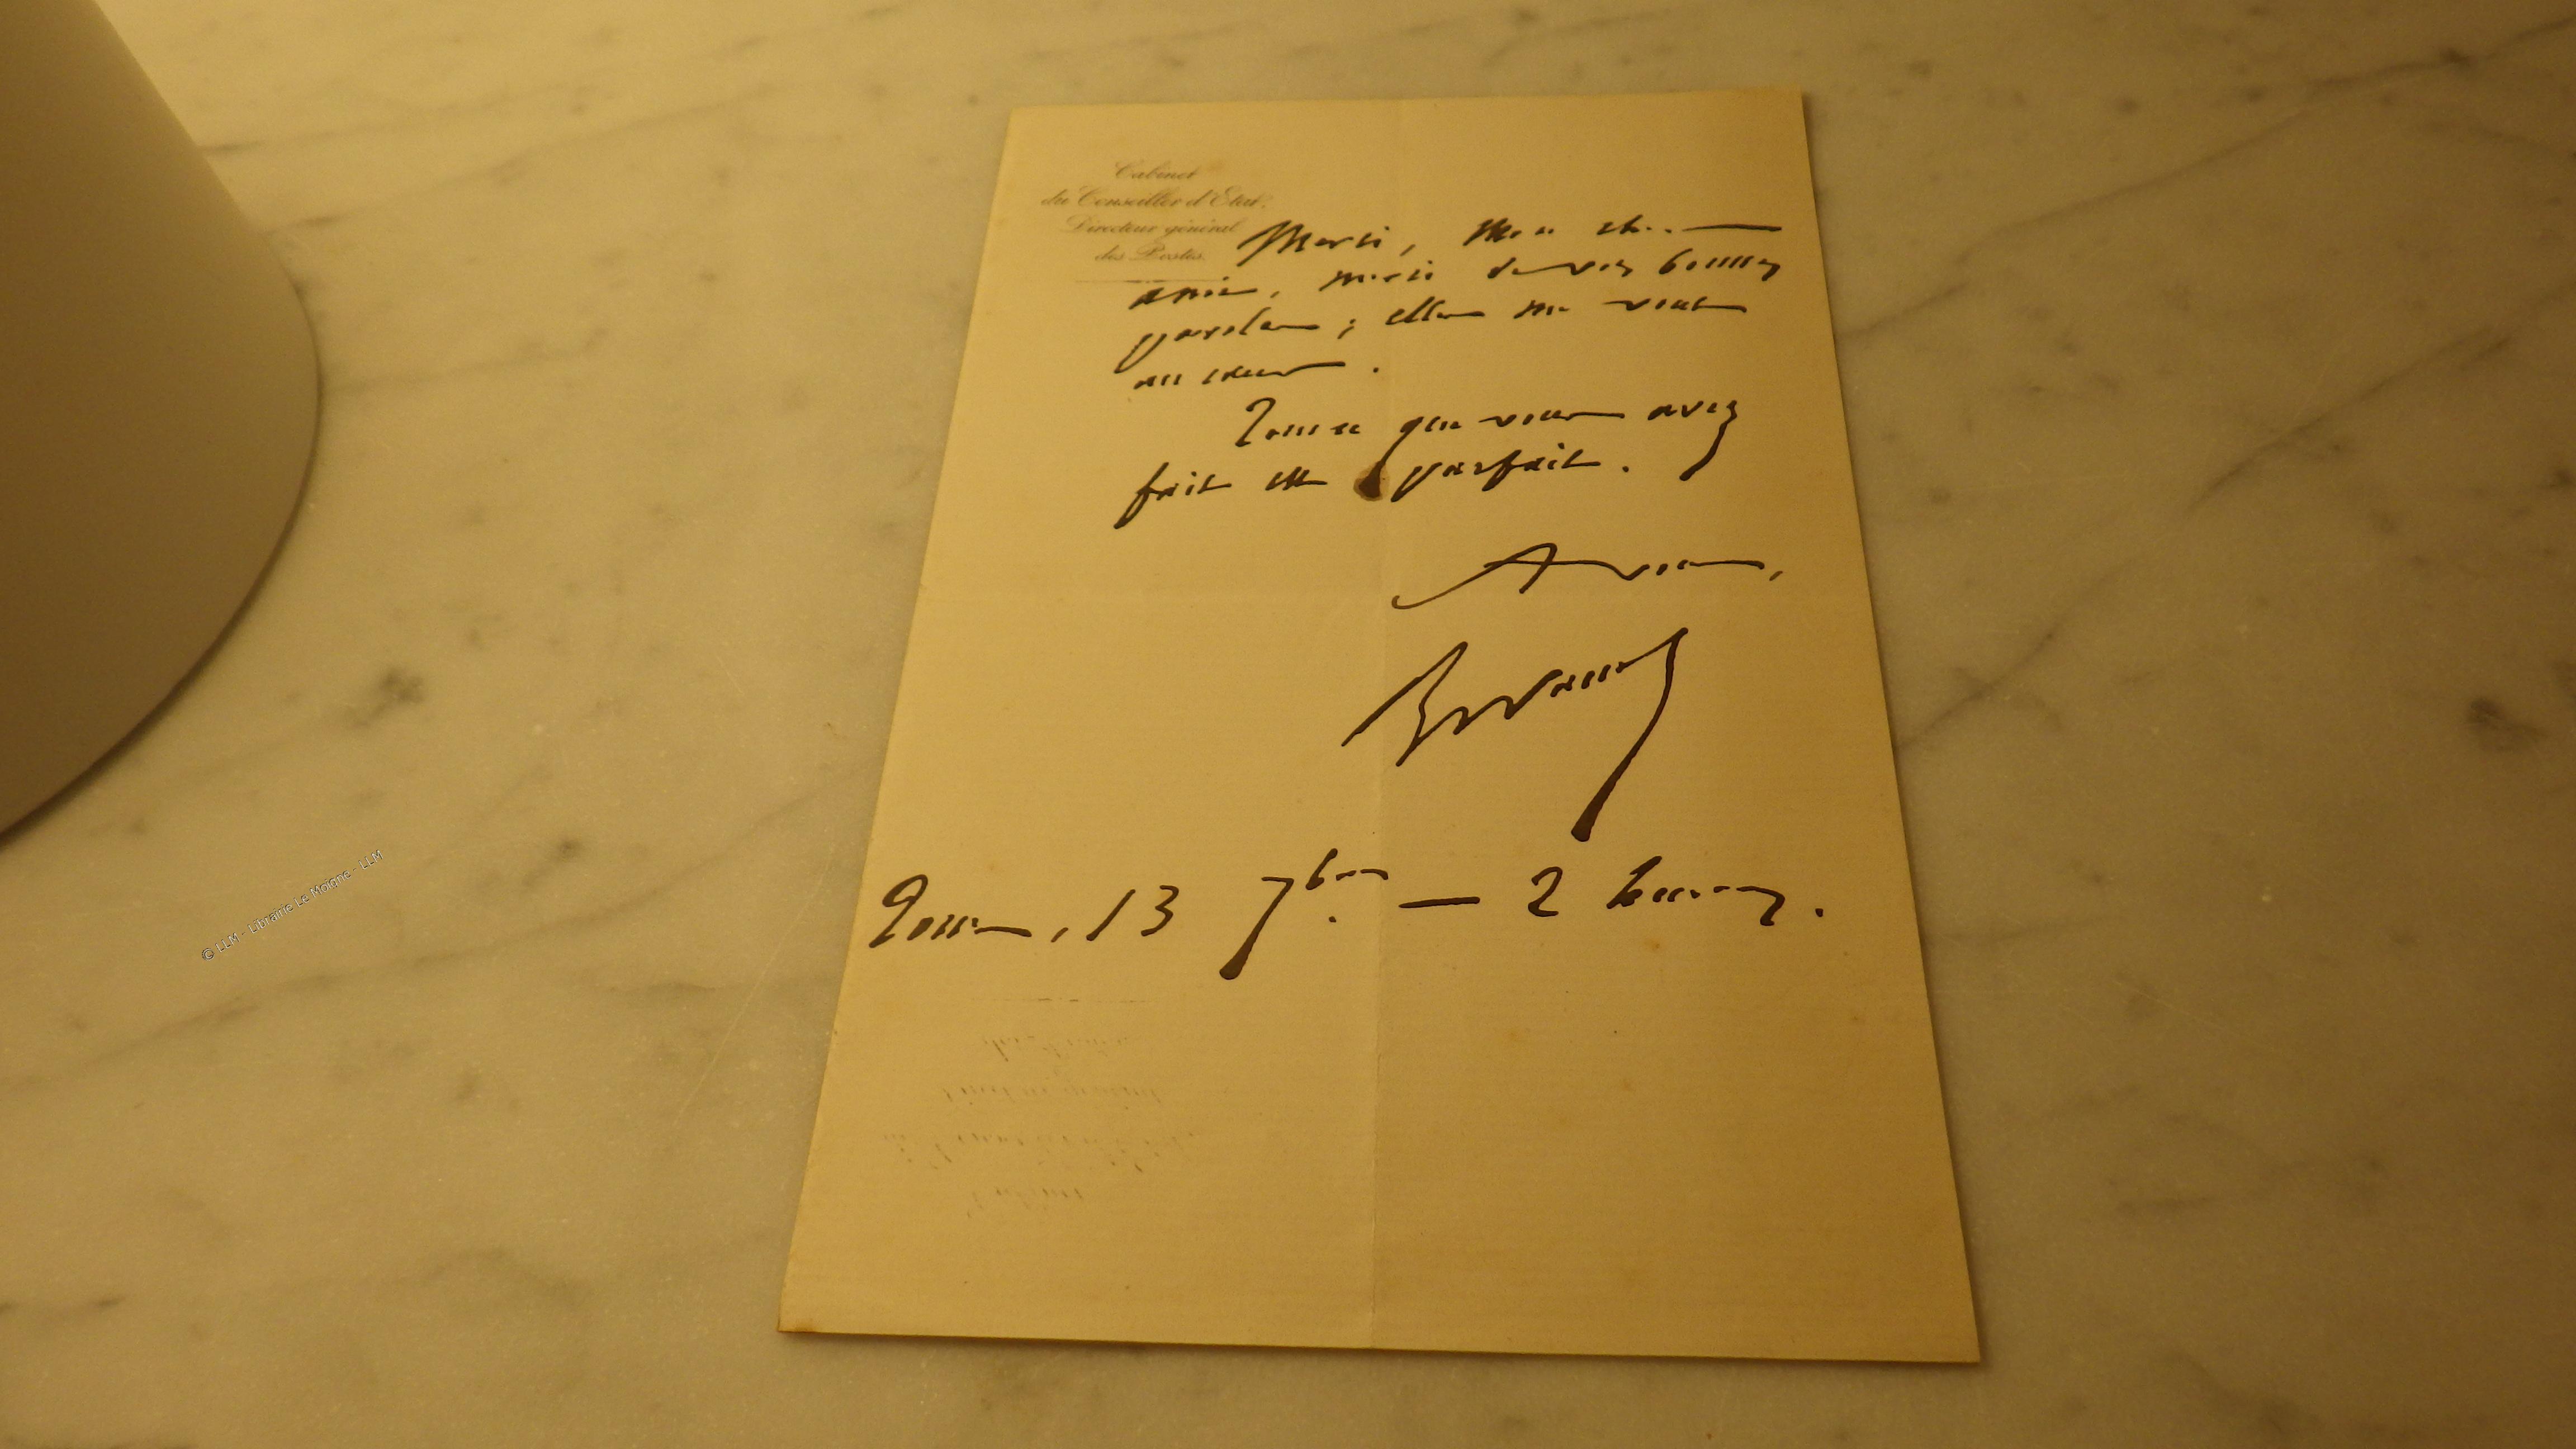 Cabinet
du Conseiller d'Etat,
Directeur général
des Postes.
Merci, mon cher
ami, merci de vos bonnes
paroles ; elles me vont
au coeur.
Tout ce que vous avez
fait est parfait.
A vous,
13 7bre. — 2 heures.
© LLM - Librairie Le Moigne - LLM